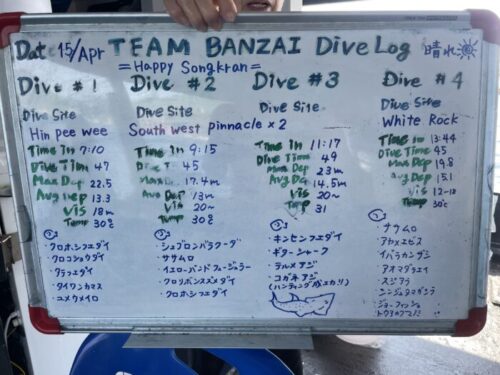 Dat 15/Apr TEAM BANZAI Dive Log 晴れ
=Happy Songkran=
Dive #1
Dive Site
Hin pee wee
Time in 7:10
Dive Time 47
Max Dep 22.5
Avg Dep 13.3
Vis 18m
Temp 30℃
・クロホシフエダイ
・クロコショウダイ
・タイワンカマス
・ユメウメイロ
Dive #2
Dive Site
South west pinnacle x 2
Time in 9:15
Dive T 45
17.4m
Avg Dep 13m
Vis 20~
Temp 30℃
・シェブロンバラクーダ
・ササムロ
・イエローバンドフュージュラー
・クロリボンスズメダイ
・クロホシフエダイ
Dive #3
Dive Site
Time in 11:17
Dive Time 49
Max Dep 23m
Avg Dep 14.5m
Vis 20~
Temp 31
・キンセンフエダイ
・ギターシャーク
・テルメアジ
・コガネアジ
(ハンティングがエカ!!)
Dive #4
Dive Site
White Rock
Time in 13:44
Dive Time 45
Max Dep 19.8
Avg Dep 15.1
Vis 12-18
Temp 30℃
・ササムロ
・イバラカンザシ
・スジアラ
・ジョーフィッシュ